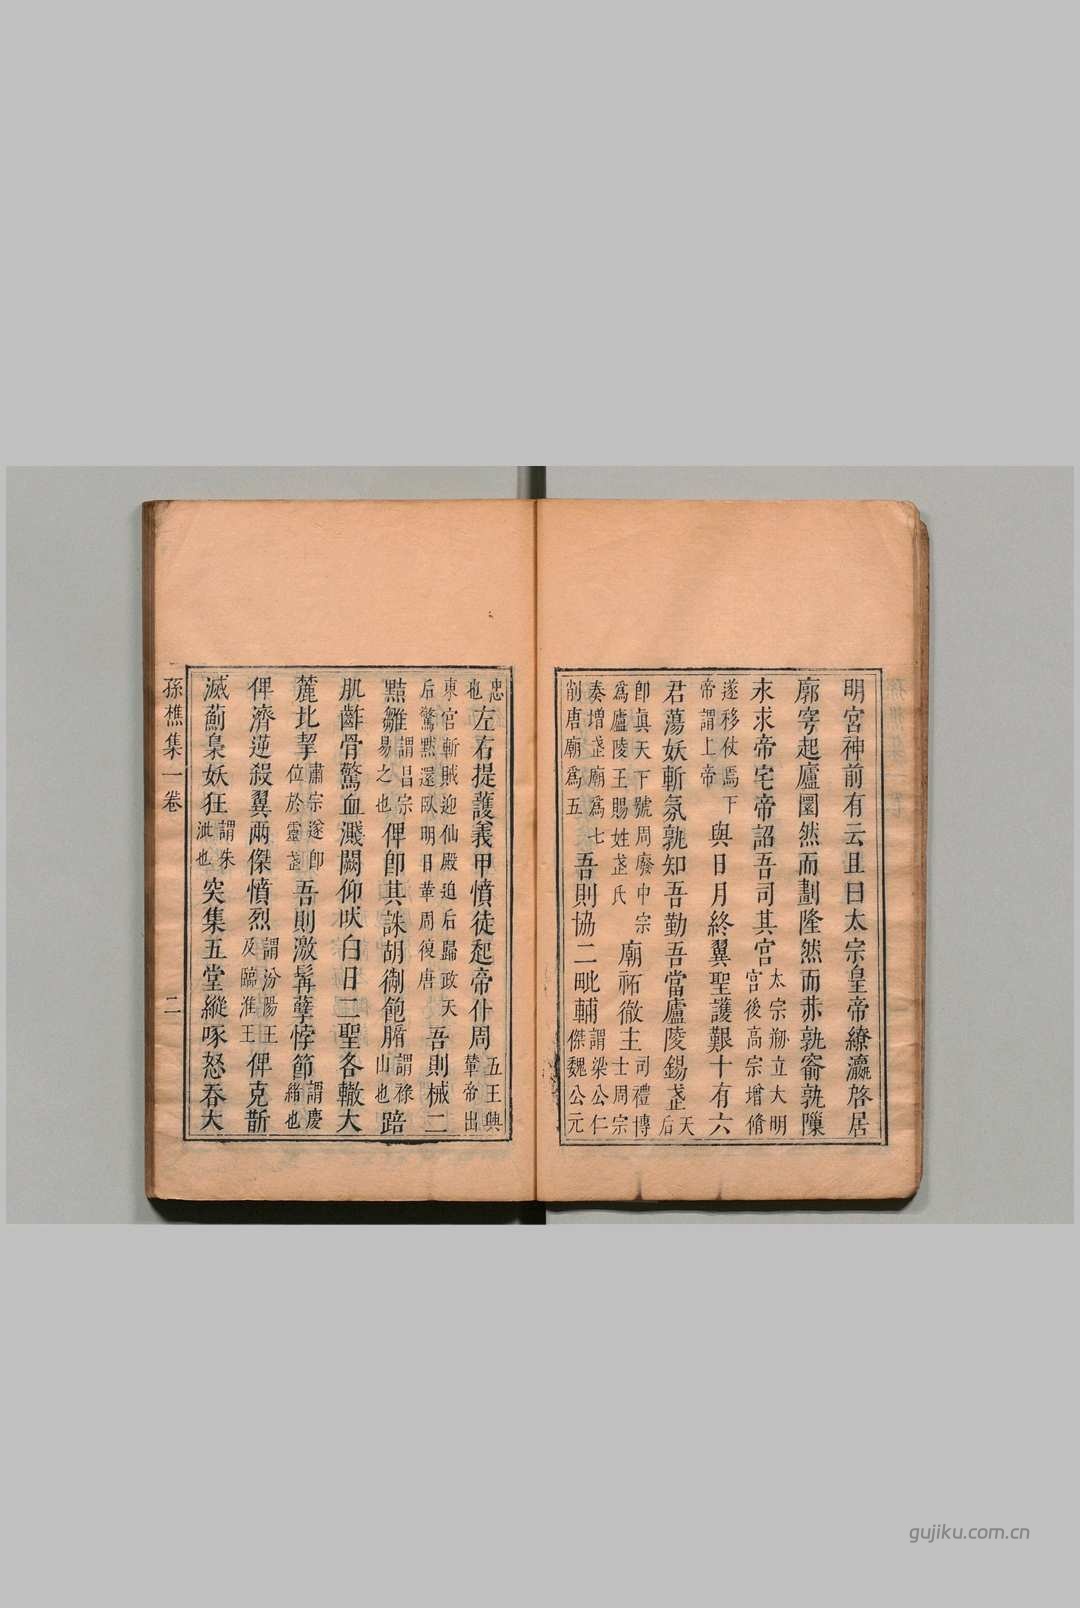 明宮神前有云且曰太宗皇帝繚瀛啓居
廓穹起廬圜然而劃隆然而赤孰窬孰隟
求帝宅帝詔吾司其宮太宗刱立大明宮後高宗增脩
遂移仗焉下帝謂上帝與日月終翼聖護艱十有六
君蕩妖斬氛孰知吾勤吾當廬陵錫武天后
卽眞天下號周廢中宗爲廬陵王賜姓武氏廟祏徹主司禮博士周宗
奏增武廟爲七削唐廟爲五吾則協二毗輔謂梁公仁傑魏公元
忠也左右提護義甲憤徒起帝仆周五王興輦帝出
東宮斬賊迎仙殿迫后歸政天后驚黜還臥明日革周復唐吾則械二
黠雛謂昌宗易之也俾卽其誅胡鶵飽脂謂祿山也踣
肌齰骨驚血濺闕仰吠白日二聖各轍大
麓北挈肅宗遂卽位於靈武吾則激髯孽悖節謂慶緒也
俾濟逆殺翼兩傑憤烈謂汾陽王及臨淮王俾克斮
滅薊梟妖狂謂朱泚也突集五堂縱啄怒吞大
孫樵集一卷 二
gujiku.com.cn